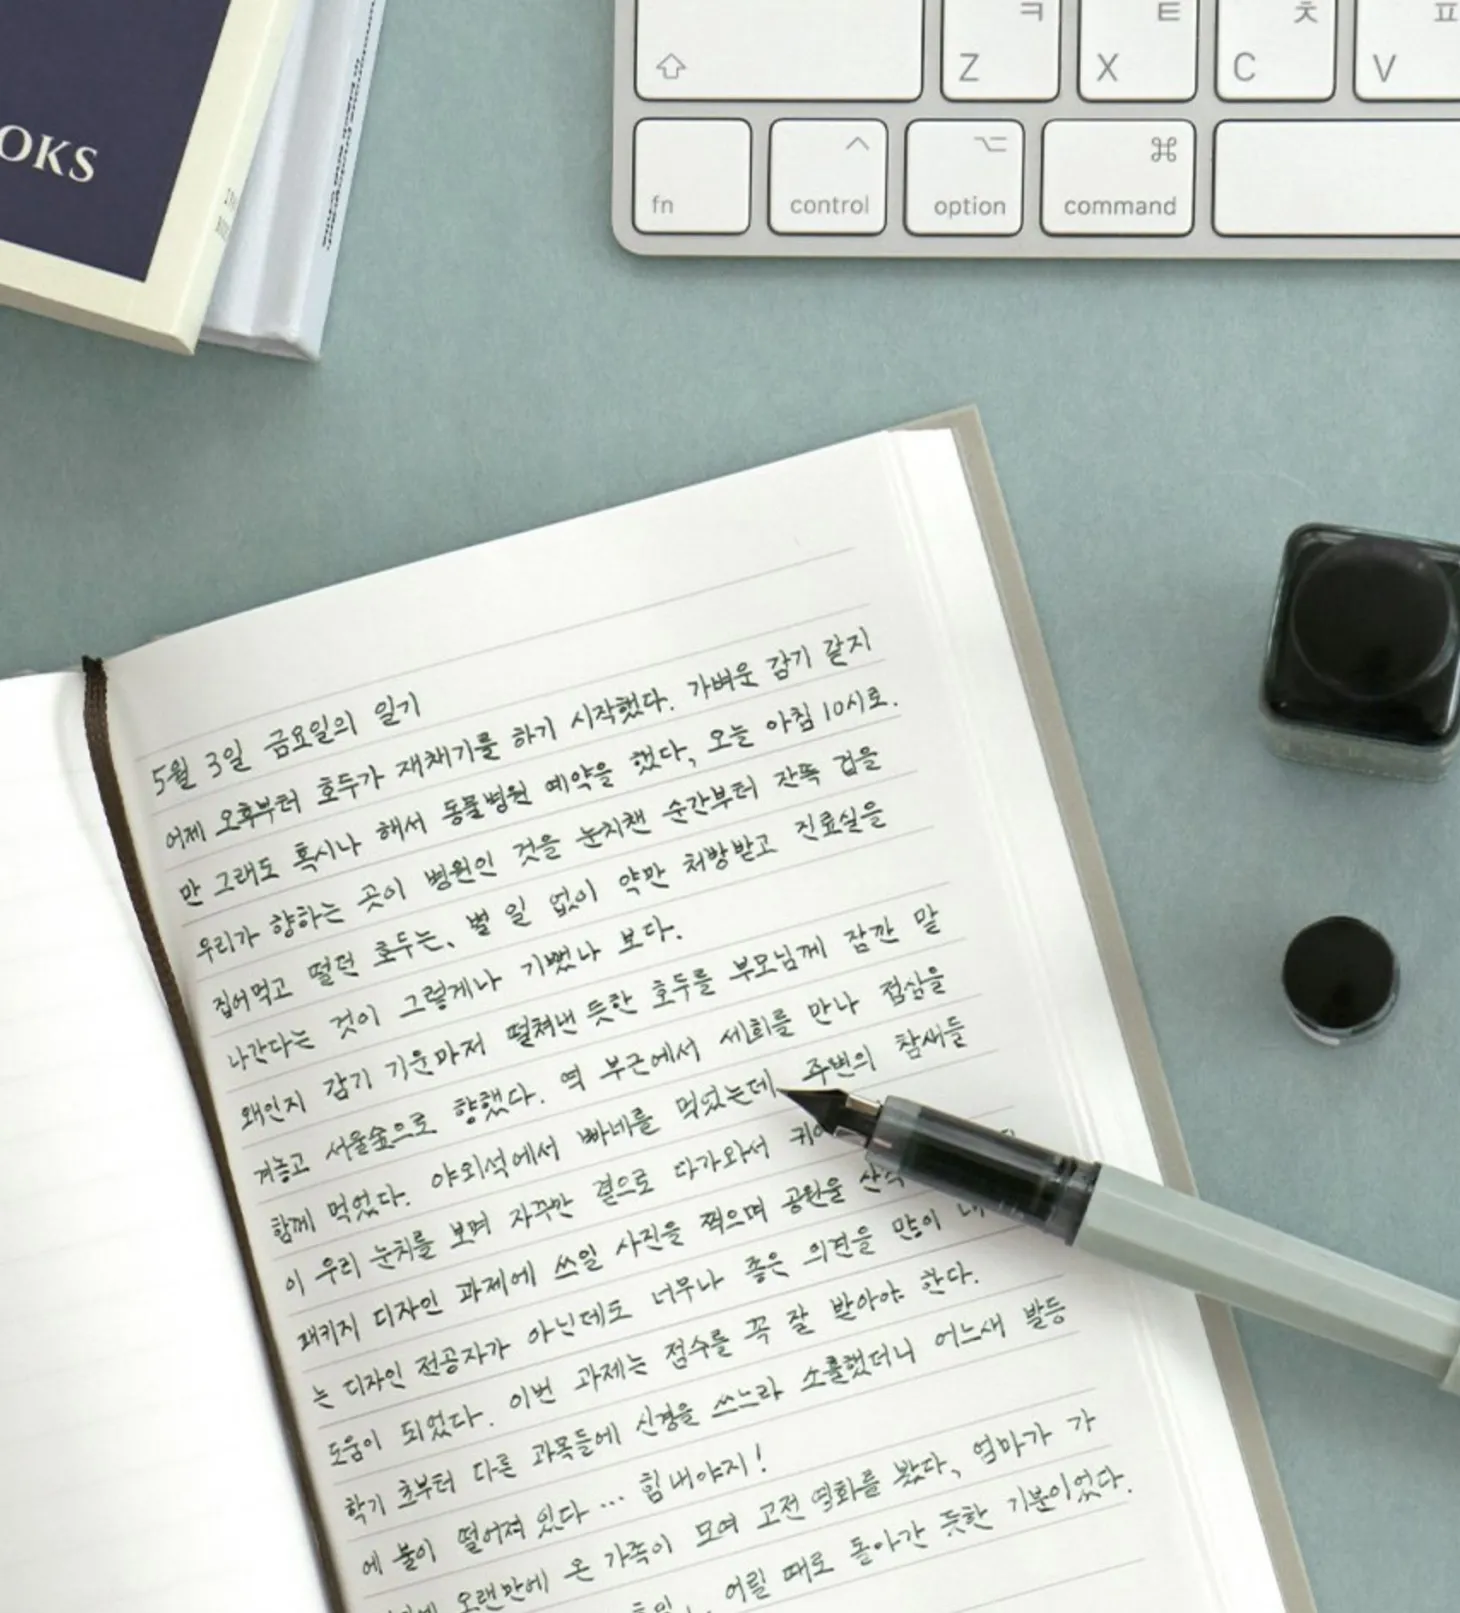 OKS
ㅋ
ㅌ
ㅊ
ㅍ
Z
X
C
V
fn
control
option
command
5월 3일 금요일의 일기
어제 오후부터 호두가 재채기를 하기 시작했다. 가벼운 감기 같지
만 그래도 혹시나 해서 동물병원 예약을 했다, 오늘 아침 10시로.
우리가 향하는 곳이 병원인 것을 눈치챈 순간부터 잔뜩 겁을
집어먹고 떨던 호두는, 별 일 없이 약만 처방받고 진료실을
나간다는 것이 그렇게나 기뻤나 보다.
왜인지 감기 기운마저 떨쳐낸 듯한 호두를 부모님께 잠깐 말
겨놓고 서울숲으로 향했다. 역 부근에서 세희를 만나 점심을
함께 먹었다. 야외석에서 빠네를 먹었는데 주변의 참새들
이 우리 눈치를 보며 자꾸만 곁으로 다가와서
패키지 디자인 과제에 쓰일 사진을 찍으며 공원을
는 디자인 전공자가 아닌데도 너무나 좋은 의견을 많이
도움이 되었다. 이번 과제는 점수를 꼭 잘 받아야 한다.
학기 초부터 다른 과목들에 신경을 쓰느라 소홀했더니 어느새 발등
에 불이 떨어져 있다… 힘내야지!
오랜만에 온 가족이 모여 고전 영화를 봤다, 엄마가 가
어릴 때로 돌아간 듯한 기분이었다.